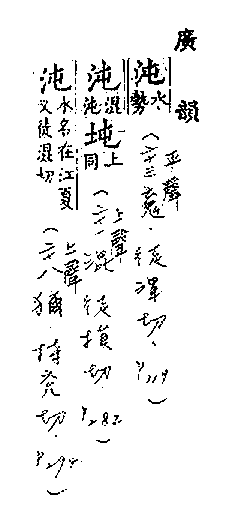 廣韻
沌水勢
(平聲
二十三魂.徒渾切.P.119)
沌混沌 坉上同
(上聲
二十一混.徒損切.P.282)
沌水名在江夏
又徒混切
(上聲
二十八獮.持兖切.P.294)